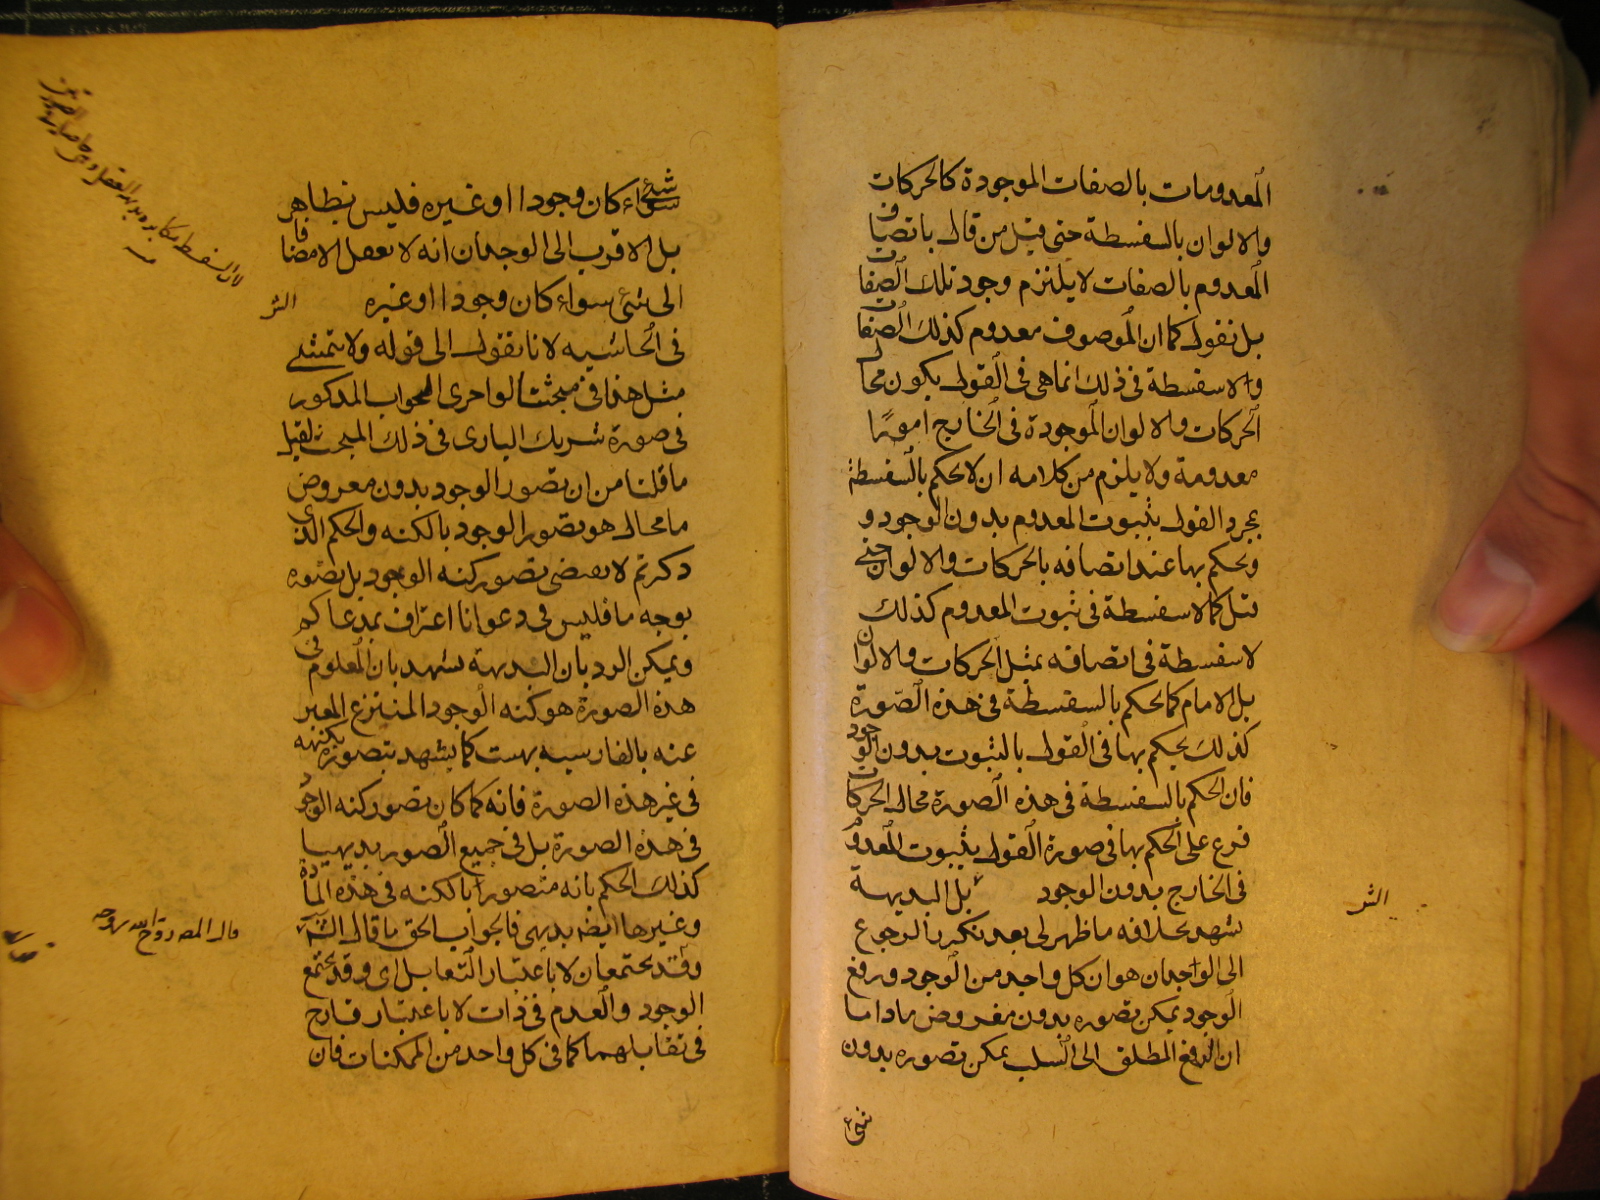 المعدومات بالصفات الموجودة كالحركات
والالوان بالسفسطة حتى قيل من قال باتصاف
المعدوم بالصفات لا يلتزم وجود تلك الصفات
بل نقول كما ان الموصوف معدوم كذلك الصفات
ولا سفسطة في ذلك انما هي في القول بكون محا
الحركات والالوان الموجودة في الخارج امورًا
معدومة ولا يلزم من كلامه ان لا يحكم بالسفسطة
بمجرد القول بثبوت المعدوم بدون الوجود و
ويحكم بها عند اتصافه بالحركات والالوان حتى
كما لا سفسطة في ثبوت المعدوم كذلك
لا سفسطة في اتصافه بمثل الحركات والالوان
بل الامام كما يحكم بالسفسطة في هذه الصورة
كذلك يحكم بها في القول بالثبوت بدون الوجود
فان الحكم بالسفسطة في هذه الصورة محال الحركات
فرع على الحكم بها في صورة القول بثبوت المعدوم
في الخارج بدون الوجود بل البديهة
تشهد بخلافه ما ظهر لي بعد بالرجوع
الى الوجدان هو ان كل واحد من الوجود ورفع
الوجود يمكن تصوره بدون معروض ما داما
ان الرفع المطلق الى السلب يمكن تصوره بدون
شئ
الش
شئ سواء كان وجودا او غيره فليس بظاهر
بل الاقرب الى الوجدان انه لا يعقل الا مضافا
الى شئ سواء كان وجودا او غيره
الش
في الحاشية لانا نقول الى قوله ولا يتمشى
مثل هذا في مبحث الجواب المذكور
في صورة شريك البارى في ذلك المبحث
ما قلنا من ان تصور الوجود بدون معروض
ما محال هو تصور الوجود بالكنه والحكم الذي
ذكرتم لا يقتضى تصور كنه الوجود بل تصوره
بوجه ما فليس في دعوانا اعتراف بمدعاكم
ويمكن الرد بان البديهة تشهد بان المعلوم في
هذه الصورة هو كنه الوجود المنتزع المعبر
عنه بالفارسية بهست كما يشهد بتصوره بكنهه
في غير هذه الصورة فانه كما كان تصور كنه الوجود
في هذه الصورة بل في جميع الصور بديهيا
كذلك الحكم بانه متصور بالكنه في هذه المادة
وغيرها ايضا بديهي فالجواب الحق ما قال
وقد يجتمعان لا باعتبار التقابل اى وقد يجتمع
الوجود والعدم في ذات لا باعتبار قادح
في تقابلهما كما في كل واحد من الممكنات فان
قال المص روح الله روحه